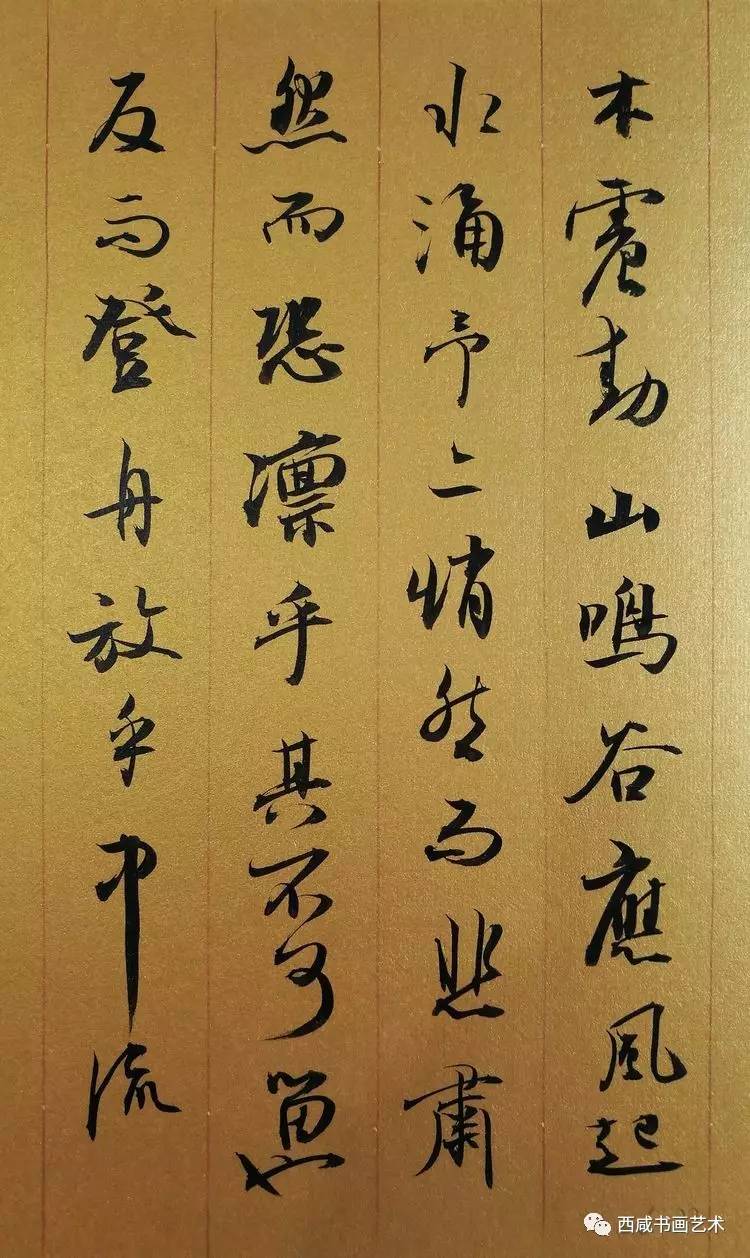 木震動山鳴谷應風起
水涌予亦悄然而悲肅
然而恐凛乎其不可留也
反而登舟放乎中流
西咸书画艺术